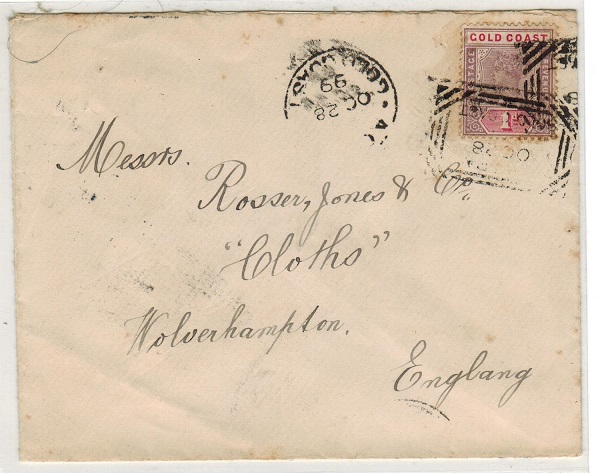 GOLD COAST
POSTAGE
1D
GOLD COAST
OC 28
99
OC 28
Messrs.
Rosser, Jones & Co.,
"Cloths"
Wolverhampton.
Englang